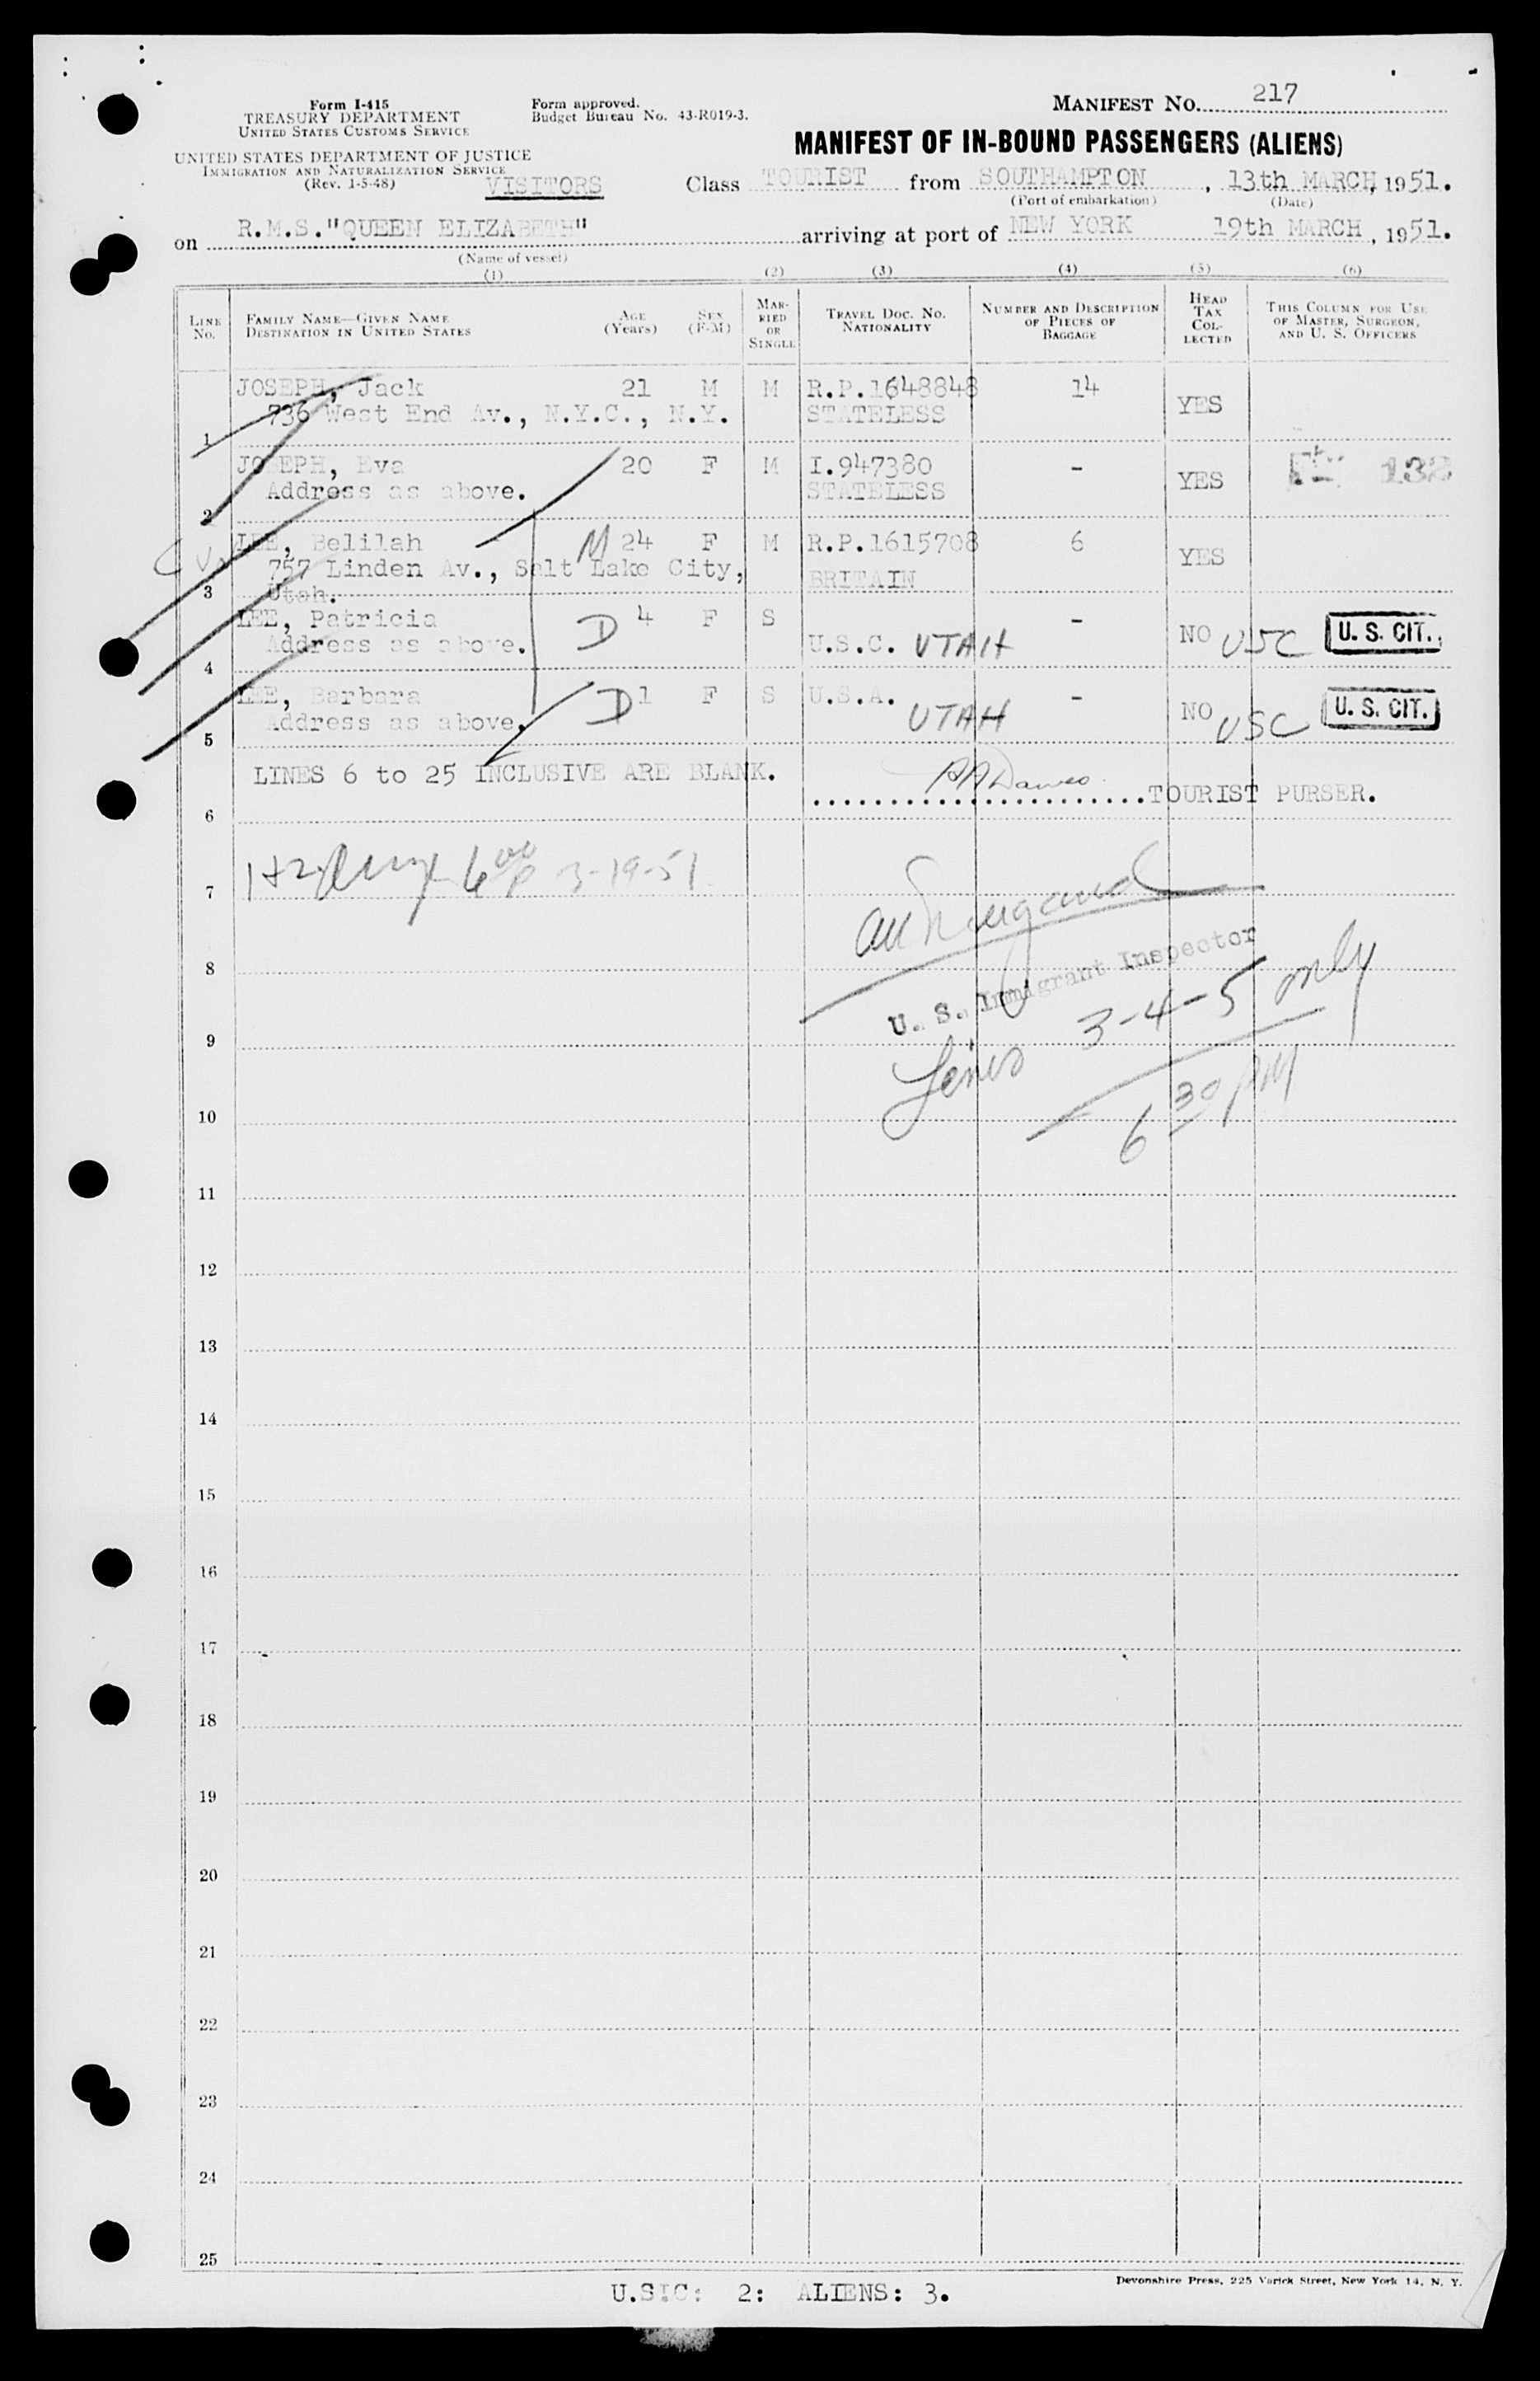 Form I-415
TREASURY DEPARTMENT
UNITED STATES CUSTOMS SERVICE
Form approved.
Budget Bureau No. 43-R019-3.
MANIFEST NO. 217
UNITED STATES DEPARTMENT OF JUSTICE
IMMIGRATION AND NATURALIZATION SERVICE
(Rev. 1-5-48)
VISITORS
MANIFEST OF IN-BOUND PASSENGERS (ALIENS)
Class TOURIST from SOUTHAMPTON, 13th MARCH, 1951.
(Port of embarkation) (Date)
on R.M.S."QUEEN ELIZABETH" arriving at port of NEW YORK 19th MARCH, 1951.
(Name of vessel)
(1) (2) (3) (4) (5) (6)
LINE NO. FAMILY NAME—GIVEN NAME DESTINATION IN UNITED STATES AGE (Years) SEX (F-M) MARRIED OR SINGLE TRAVEL DOC. NO. NATIONALITY NUMBER AND DESCRIPTION OF PIECES OF BAGGAGE HEAD TAX COLLECTED THIS COLUMN FOR USE OF MASTER, SURGEON, AND U. S. OFFICERS
JOSEPH, Jack 21 M M R.P.1648848 14 YES
736 West End Av., N.Y.C., N.Y. STATELESS
1
JOSEPH, Eva 20 F M I.947380 - YES 132
Address as above. STATELESS
2
LEE, Belilah M 24 F M R.P.1615708 6 YES
757 Linden Av., Salt Lake City, BRITAIN
3 Utah.
LEE, Patricia D 4 F S - NO USC U. S. CIT.
Address as above. U.S.C. UTAH
4
LEE, Barbara D 1 F S U.S.A. - NO USC U. S. CIT.
Address as above. UTAH
5
LINES 6 to 25 INCLUSIVE ARE BLANK.
TOURIST PURSER.
6
6 00 P 3-19-51
7
8
U. S. Immigrant Inspector
9
Lines 3-4-5 only
10
6 30 PM
11
12
13
14
15
16
17
18
19
20
21
22
23
24
25
Devonshire Press, 225 Varick Street, New York 14, N. Y.
U.S.C: 2: ALIENS: 3.